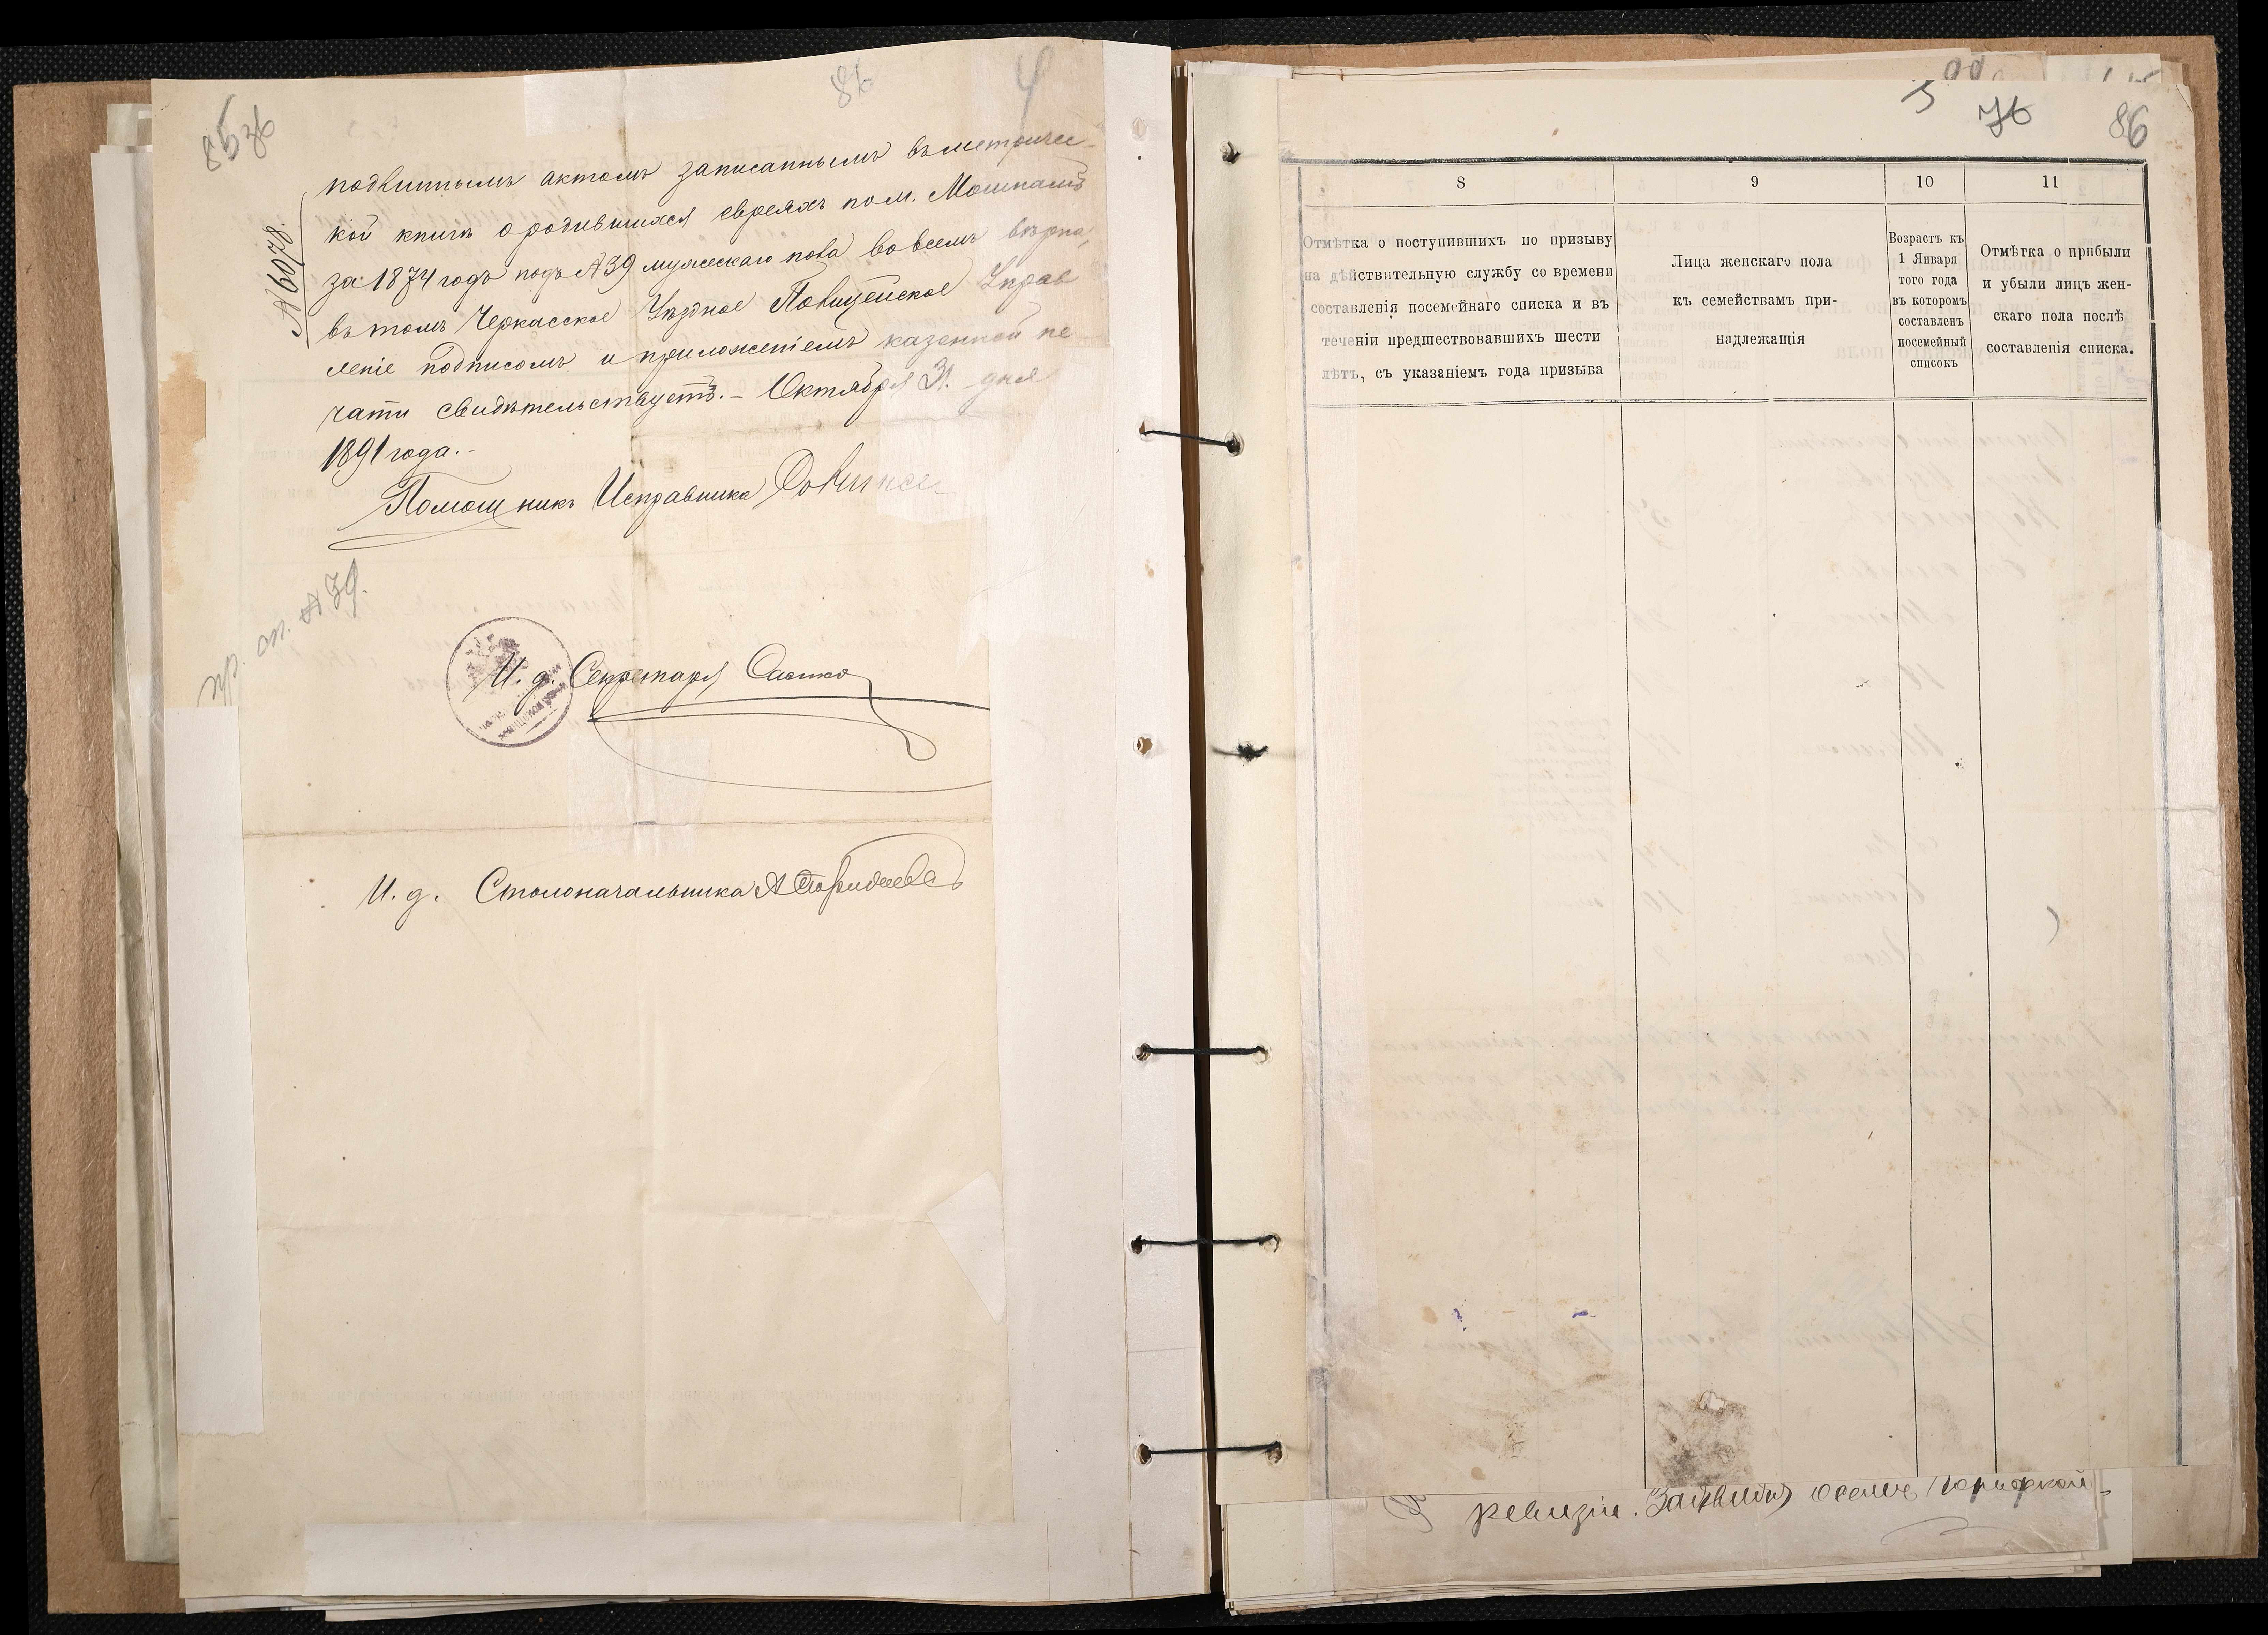 85 76
86
4
№ 6078.
подлиннымъ актомъ записаннымъ въ метричес-
кой книгѣ о родившихся евреяхъ по м. Мошнамъ
за 1874 годъ подъ №39 мужескаго пола во всемъ вѣрна,
въ томъ Черкасское Уѣздное Полицейское Управ
леніе подписомъ и приложеніемъ казенной пе
чати свидѣтельствуетъ.- Октября 31. дня
1891 года.-
Помощникъ Исправника
пр. оп. № 79.
И. д. Секретаря
И. д. Столоначальника
76
86
8
9
10
11
Отмѣтка о поступившихъ по призыву
на дѣйствительную службу со времени
составленія посемейнаго списка и въ
теченіи предшествовавшихъ шести
лѣтъ, съ указаніемъ года призыва
Лица женскаго пола
къ семействамъ при-
надлежащія
Возрастъ къ
1 Января
того года
въ которомъ
составленъ
посемейный
списокъ
Отмѣтка о прибыли
и убыли лицъ жен-
скаго пола послѣ
составленія списка.
ревизіи.